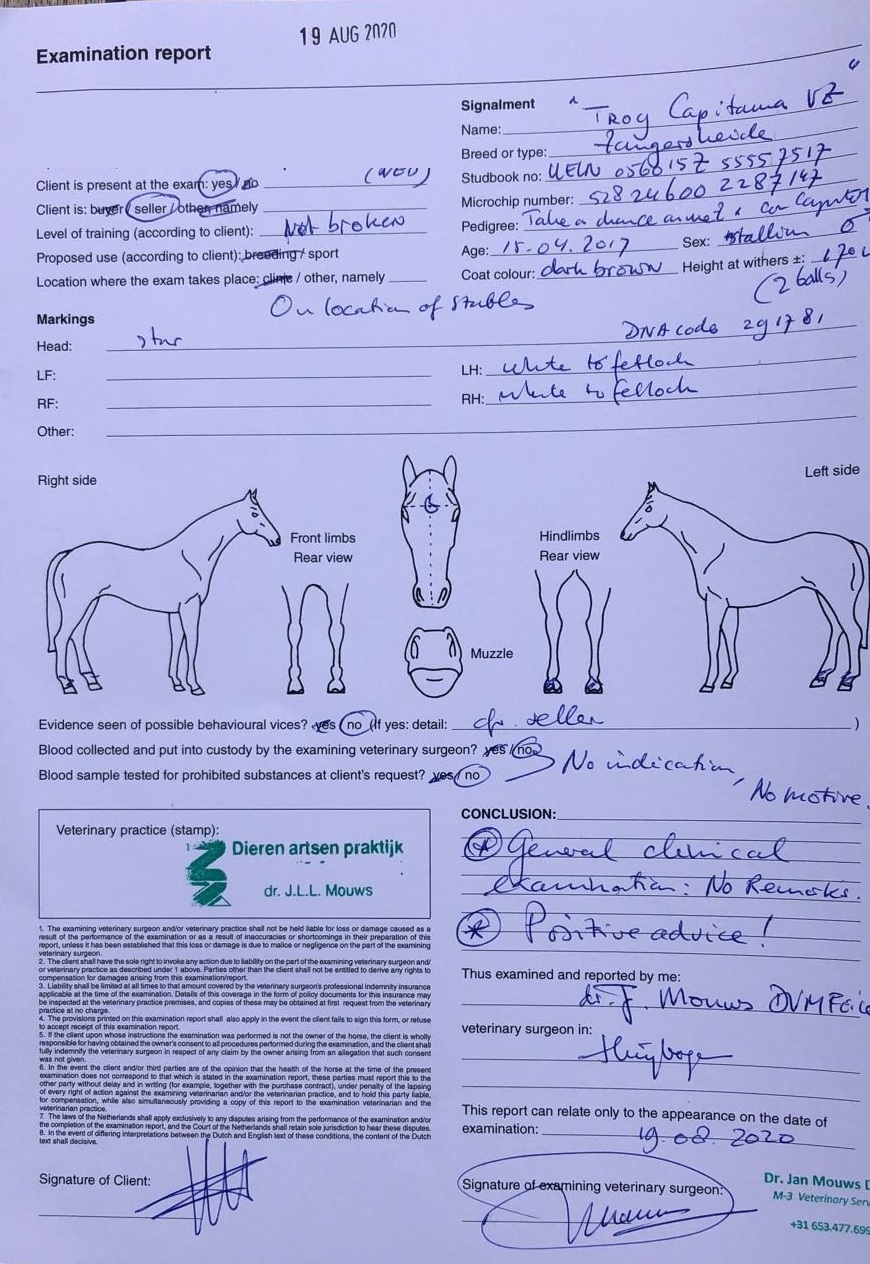 19 AUG 2020
Examination report
Signalment
Name: "Troy Capitana VZ"
Breed or type: Zangersheide
Studbook no: UELN 056015Z 55557517
Microchip number: 528 24600 2287147
Pedigree: Take a chance
Age: 15.04.2017 Sex: Stallion ♂
Coat colour: dark brown Height at withers ±:
(2 balls)
Client is present at the exam: yes / no
Client is: buyer / seller / other, namely
Level of training (according to client): Not broken
Proposed use (according to client): breeding / sport
Location where the exam takes place: clinic / other, namely
On location of stables
Markings
DNA code 291781
Head: star
LF:
LH: white to fetloch
RF:
RH: white to fetloch
Other:
Right side
Left side
Front limbs
Rear view
Hindlimbs
Rear view
Muzzle
Evidence seen of possible behavioural vices? yes / no (If yes: detail: cfr. seller )
Blood collected and put into custody by the examining veterinary surgeon? yes / no
Blood sample tested for prohibited substances at client's request? yes / no
No indication, No motive.
Veterinary practice (stamp):
Dieren artsen praktijk
dr. J.L.L. Mouws
1. The examining veterinary surgeon and/or veterinary practice shall not be held liable for loss or damage caused as a
result of the performance of the examination or as a result of inaccuracies or shortcomings in their preparation of this
report, unless it has been established that this loss or damage is due to malice or negligence on the part of the examining
veterinary surgeon.
2. The client shall have the sole right to invoke any action due to liability on the part of the examining veterinary surgeon and/
or veterinary practice as described under 1 above. Parties other than the client shall not be entitled to derive any rights to
compensation for damages arising from this examination/report.
3. Liability shall be limited at all times to that amount covered by the veterinary surgeon's professional indemnity insurance
applicable at the time of the examination. Details of this coverage in the form of policy documents for this insurance may
be inspected at the veterinary practice premises, and copies of these may be obtained at first request from the veterinary
practice at no charge.
4. The provisions printed on this examination report shall also apply in the event the client fails to sign this form, or refuse
to accept receipt of this examination report.
5. If the client upon whose instructions the examination was performed is not the owner of the horse, the client is wholly
responsible for having obtained the owner's consent to all procedures performed during the examination, and the client shall
fully indemnify the veterinary surgeon in respect of any claim by the owner arising from an allegation that such consent
was not given.
6. In the event the client and/or third parties are of the opinion that the health of the horse at the time of the present
examination does not correspond to that which is stated in the examination report, these parties must report this to the
other party without delay and in writing (for example, together with the purchase contract), under penalty of the lapsing
of every right of action against the examining veterinarian and/or the veterinary practice, and to hold this party liable,
for compensation, while also simultaneously providing a copy of this report to the examination veterinarian and the
veterinarian practice.
7. The laws of the Netherlands shall apply exclusively to any disputes arising from the performance of the examination and/or
the completion of the examination report, and the Court of the Netherlands shall retain sole jurisdiction to hear these disputes.
8. In the event of differing interpretations between the Dutch and English text of these conditions, the content of the Dutch
text shall decisive.
Signature of Client:
CONCLUSION:
* General clinical
examination: No Remarks.
* Positive advice!
Thus examined and reported by me:
dr. J. Mouws DVM
veterinary surgeon in:
This report can relate only to the appearance on the date of
examination: 19.08.2020
Signature of examining veterinary surgeon:
Dr. Jan Mouws D
M-3 Veterinary Serv
+31 653.477.699